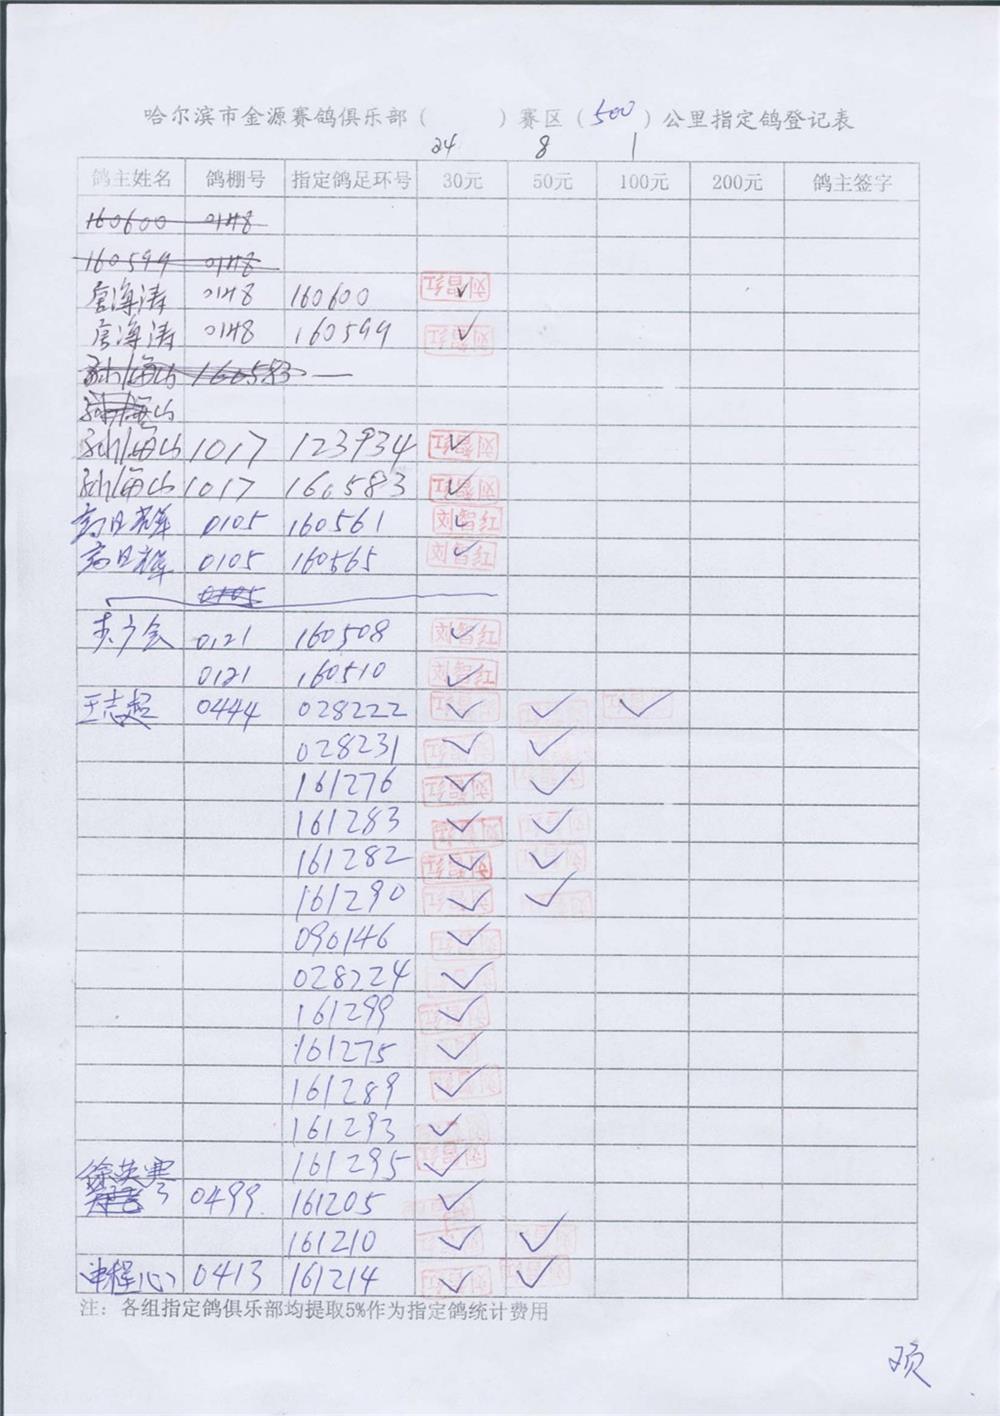 哈尔滨市金源赛鸽俱乐部（ ）赛区（500）公里指定鸽登记表
24 8 1
鸽主姓名 鸽棚号 指定鸽足环号 30元 50元 100元 200元 鸽主签字
160600 0148
160599 0148
唐海涛 0148 160600 刘智红 ✓
唐海涛 0148 160599 刘智红 ✓
孙海山 160583
孙海山
孙海山 1017 123934 刘智红 ✓
孙海山 1017 160583 刘智红 ✓
高日辉 0105 160561 刘智红 ✓
高日辉 0105 160565 刘智红 ✓
0105
0121 160508 刘智红 ✓
0121 160510 刘智红 ✓
王志超 0444 028222 ✓ ✓ ✓
028231 ✓ ✓
161276 ✓ ✓
161283 ✓ ✓
161282 ✓ ✓
161290 ✓ ✓
090146 ✓
028224 ✓
161299 ✓
161275 ✓
161289 ✓
161293 ✓
161295 ✓
徐英寒 0499 161205 ✓
161210 ✓ ✓
0413 161214 ✓ ✓
注：各组指定鸽俱乐部均提取5%作为指定鸽统计费用